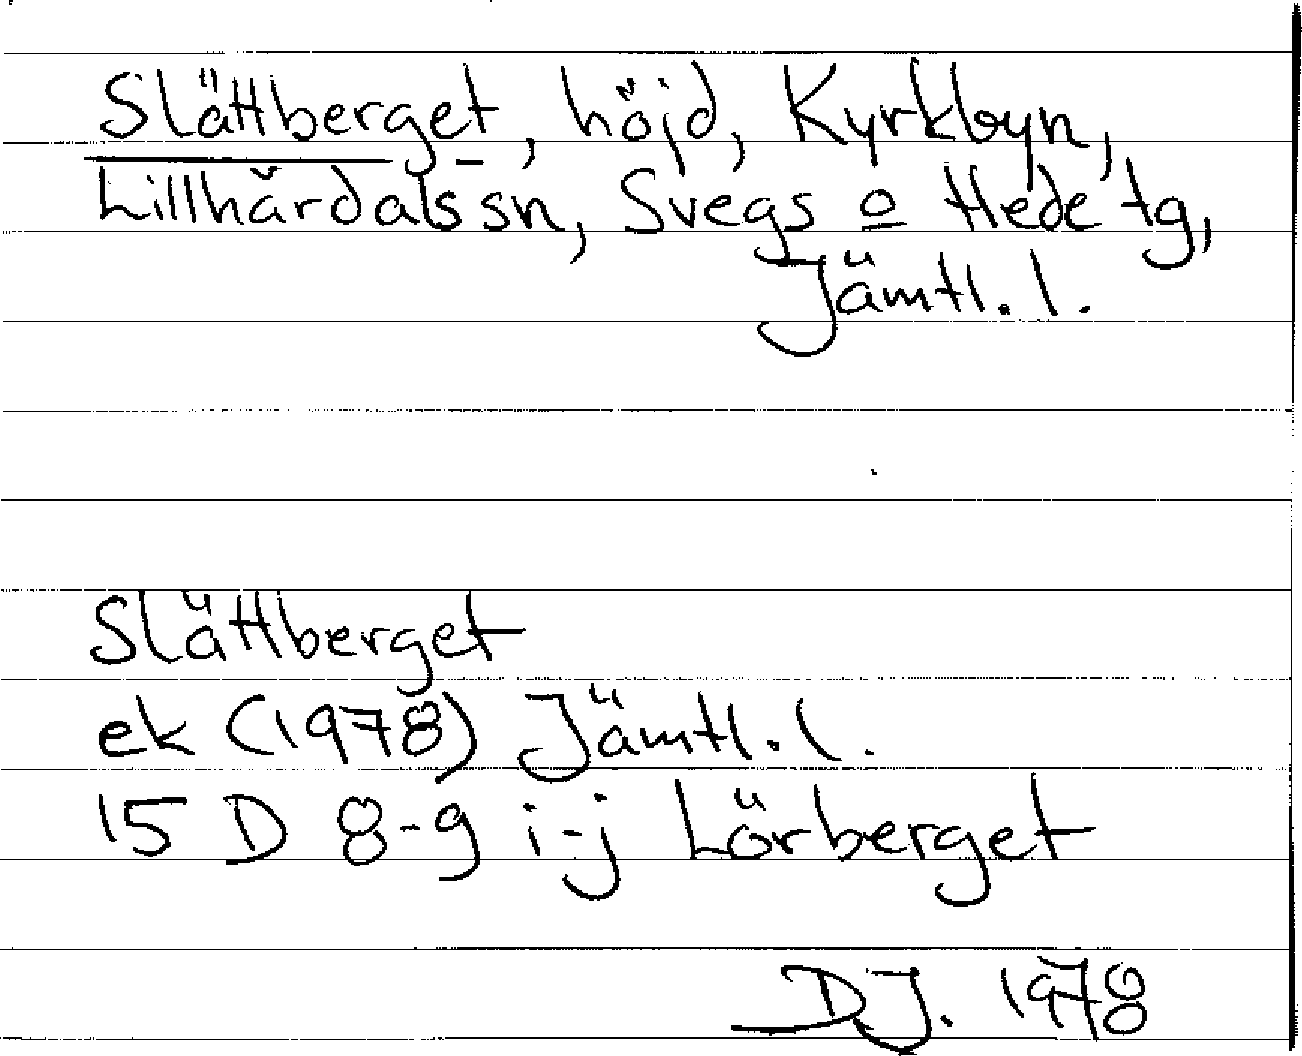 Slättberget, höjd, Kyrkbyn,
Lillhärdals sn, Svegs o Hede tg,
Jämtl. l.
Slättberget
ek (1978) Jämtl. l.
15 D 8-9 i-j Lörberget
DJ. 1978